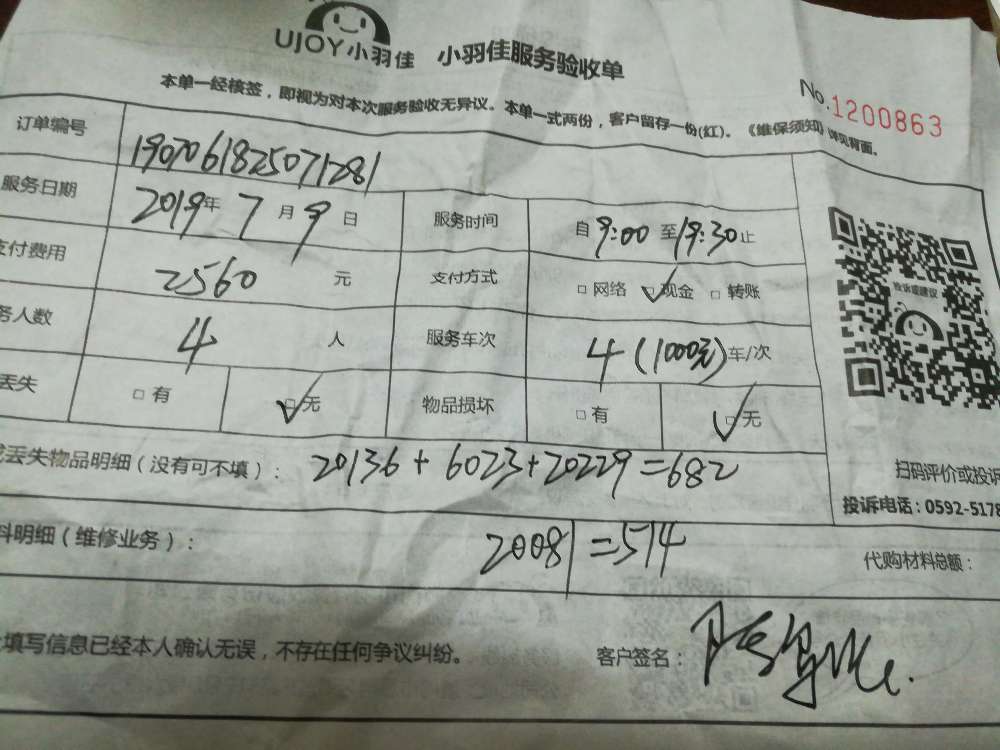 UJOY小羽佳 小羽佳服务验收单
No.1200863
本单一经核签，即视为对本次服务验收无异议。本单一式两份，客户留存一份(红)。《维保须知》详见背面。
订单编号 1907061825071281
服务日期 2019年 7月 9日 服务时间 自9:00至19:30止
支付费用 2560 元 支付方式 □网络 ☑现金 □转账
务人数 4 人 服务车次 4 (1000元) 车/次
丢失 □有 ☑无 物品损坏 □有 ☑无
投诉或建议
丢失物品明细（没有可不填）： 20136 + 6023 + 20229 = 682
扫码评价或投诉
投诉电话：0592-5178
料明细（维修业务）： 20081 = 514
代购材料总额：
填写信息已经本人确认无误，不存在任何争议纠纷。 客户签名：